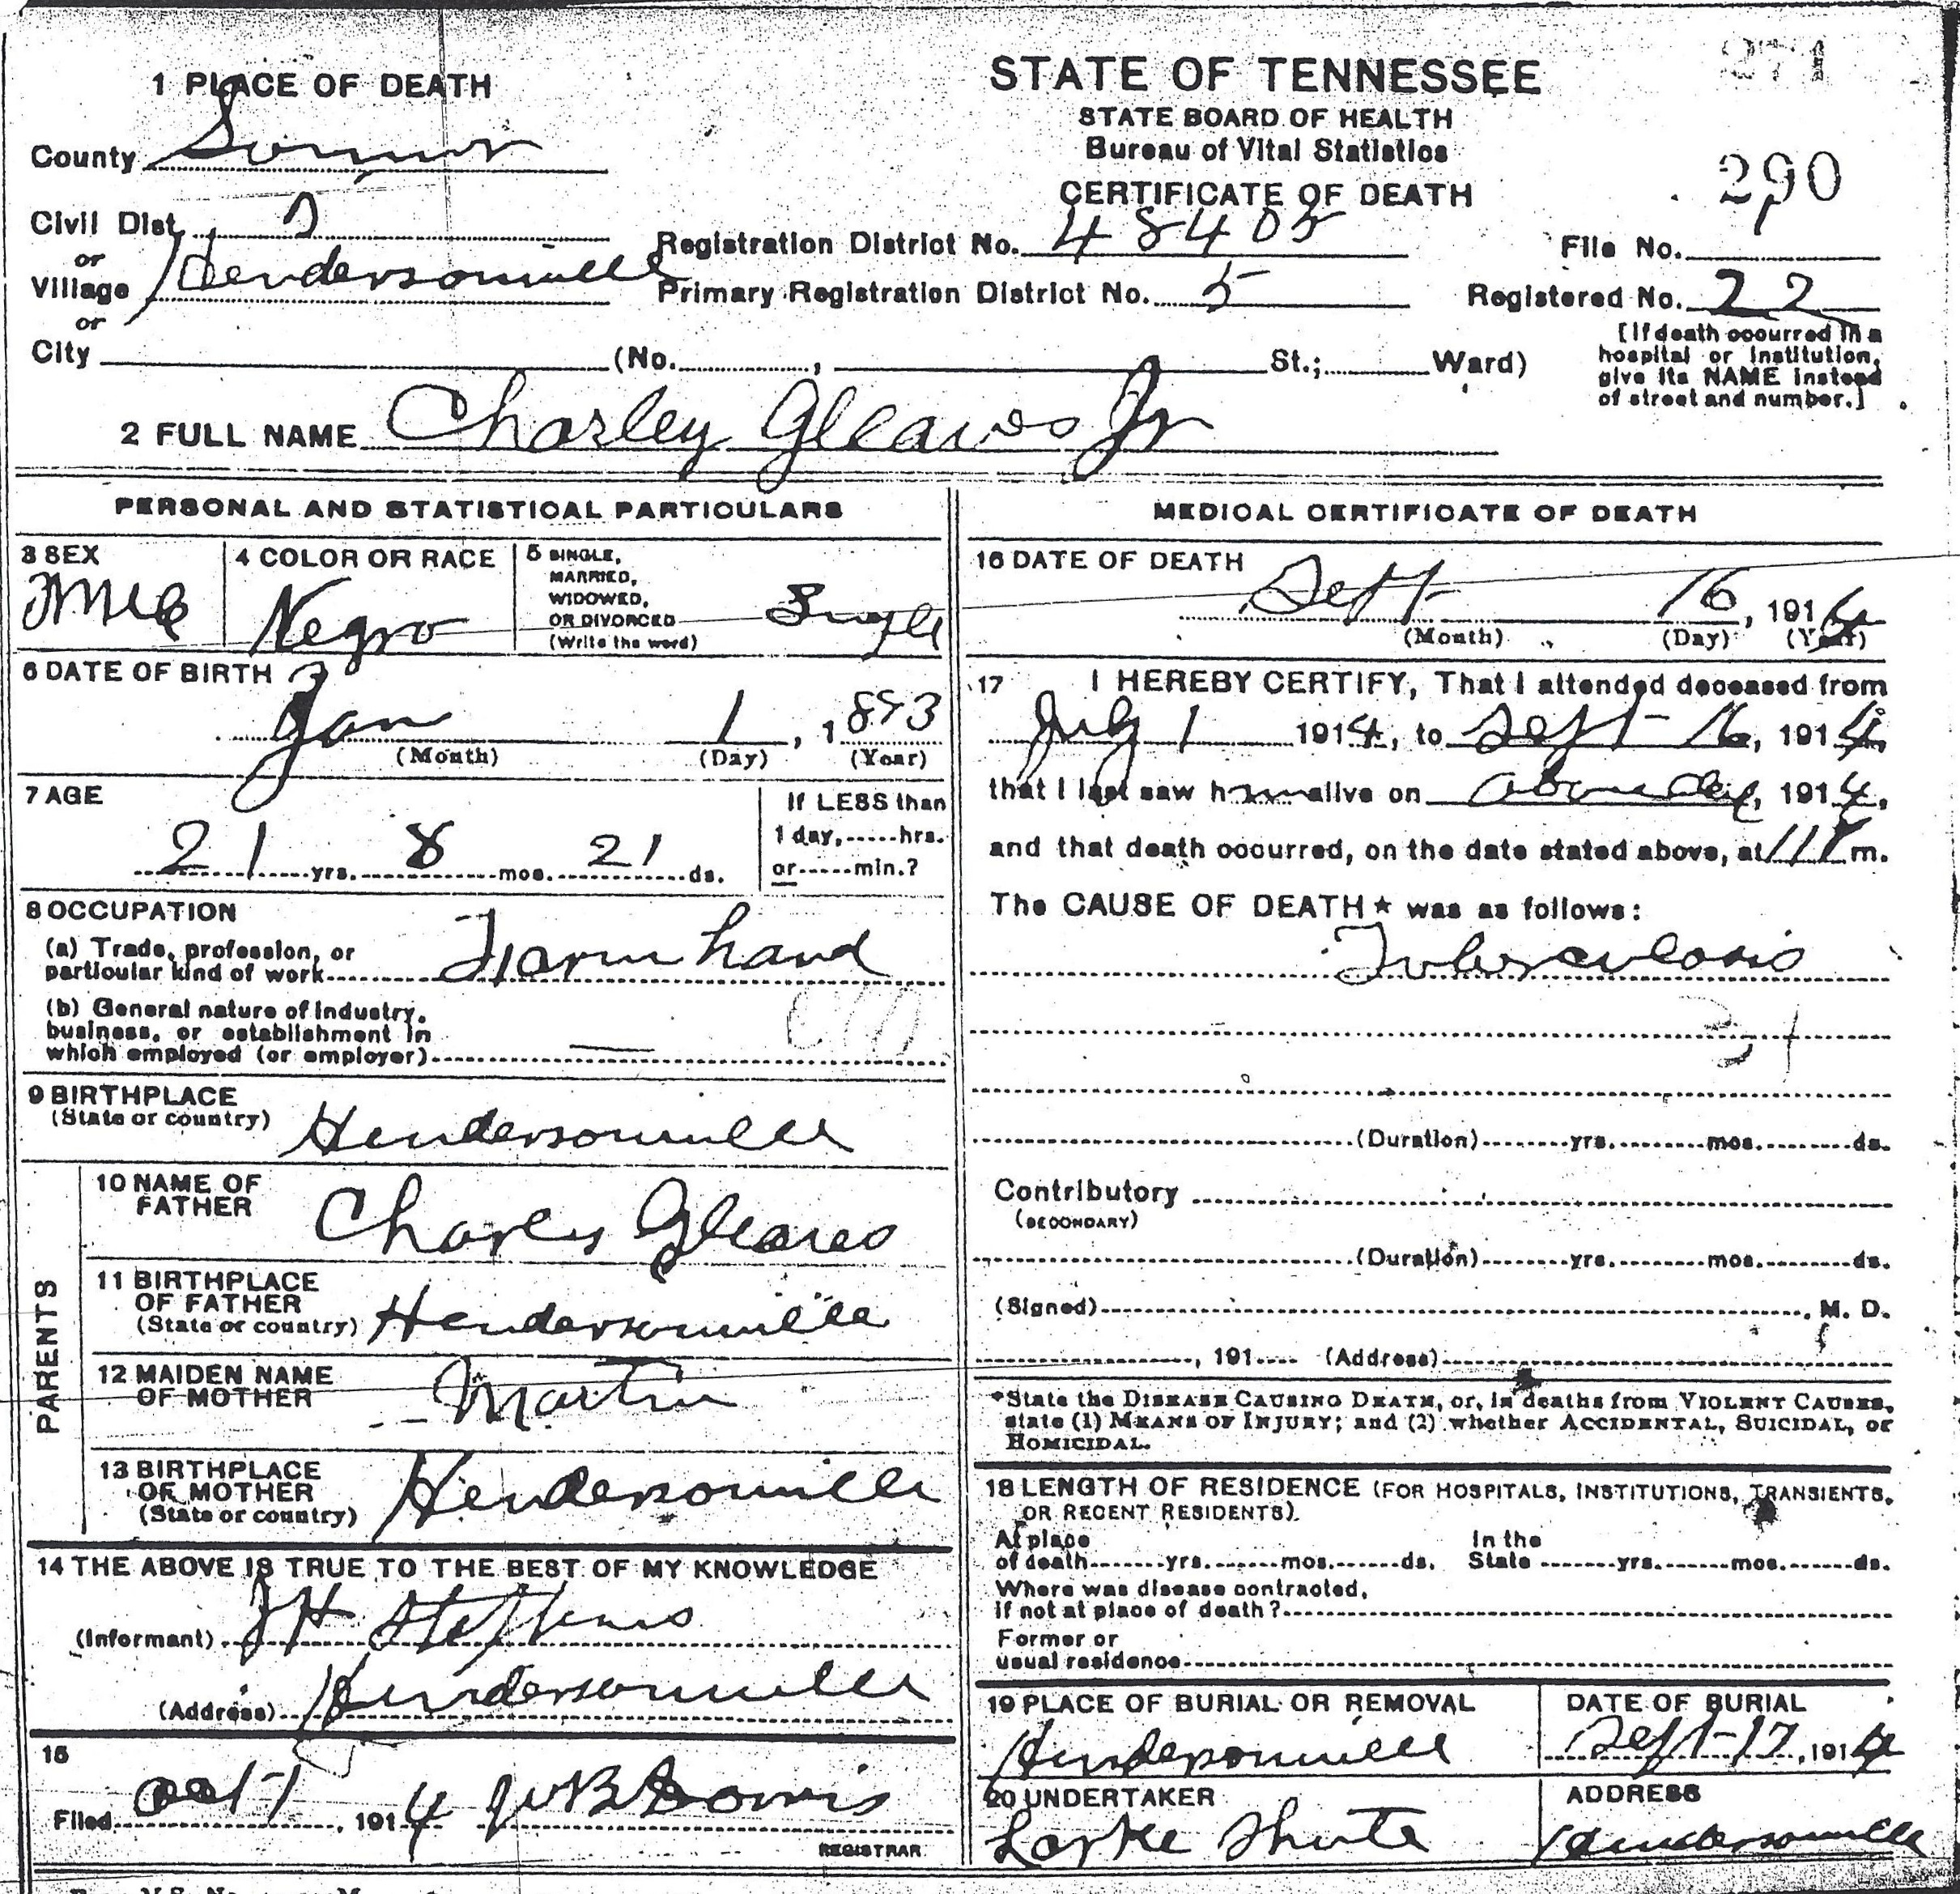 271
1 PLACE OF DEATH
STATE OF TENNESSEE
STATE BOARD OF HEALTH
Bureau of Vital Statistics
CERTIFICATE OF DEATH
290
County Sumner
Civil Dist.
or
Village Hendersonville
or
City (No. , St.; Ward)
Registration District No. 48405
File No.
Primary Registration District No. 5
Registered No. 22
[If death occurred in a
hospital or institution,
give its NAME instead
of street and number.]
2 FULL NAME Charley Gleaves Jr
PERSONAL AND STATISTICAL PARTICULARS
3 SEX
4 COLOR OR RACE Negro
5 SINGLE,
MARRIED,
WIDOWED,
OR DIVORCED
(Write the word)
Single
6 DATE OF BIRTH
Jan 1, 1893
(Month) (Day) (Year)
7 AGE
21 yrs. 8 mos. 21 ds.
If LESS than
1 day, hrs.
or min.?
8 OCCUPATION
(a) Trade, profession, or
particular kind of work Farm hand
(b) General nature of industry,
business, or establishment in
which employed (or employer) —
9 BIRTHPLACE
(State or country) Hendersonville
PARENTS
10 NAME OF
FATHER
Charley Gleaves
11 BIRTHPLACE
OF FATHER
(State or country) Hendersonville
12 MAIDEN NAME
OF MOTHER
-- Martin
13 BIRTHPLACE
OF MOTHER
(State or country) Hendersonville
14 THE ABOVE IS TRUE TO THE BEST OF MY KNOWLEDGE
(Informant) JH Steffens
(Address) Hendersonville
15
Filed Oct 1, 1914 WB Dorris
REGISTRAR
MEDICAL CERTIFICATE OF DEATH
16 DATE OF DEATH
Sept 16, 1914
(Month) (Day) (Year)
17 I HEREBY CERTIFY, That I attended deceased from
July 1 1914, to Sept 16, 1914,
that I last saw him alive on above day, 1914,
and that death occurred, on the date stated above, at m.
The CAUSE OF DEATH* was as follows:
Tuberculosis
31
(Duration) yrs. mos. ds.
Contributory
(SECONDARY)
(Duration) yrs. mos. ds.
(Signed) , M. D.
, 191 (Address)
*State the DISEASE CAUSING DEATH, or, in deaths from VIOLENT CAUSES,
state (1) MEANS OF INJURY; and (2) whether ACCIDENTAL, SUICIDAL, or
HOMICIDAL.
18 LENGTH OF RESIDENCE (FOR HOSPITALS, INSTITUTIONS, TRANSIENTS,
OR RECENT RESIDENTS).
At place
of death yrs. mos. ds.
In the
State yrs. mos. ds.
Where was disease contracted,
if not at place of death?
Former or
usual residence
19 PLACE OF BURIAL OR REMOVAL
Hendersonville
DATE OF BURIAL
Sept 17, 1914
20 UNDERTAKER
Larke Shute
ADDRESS
Hendersonville